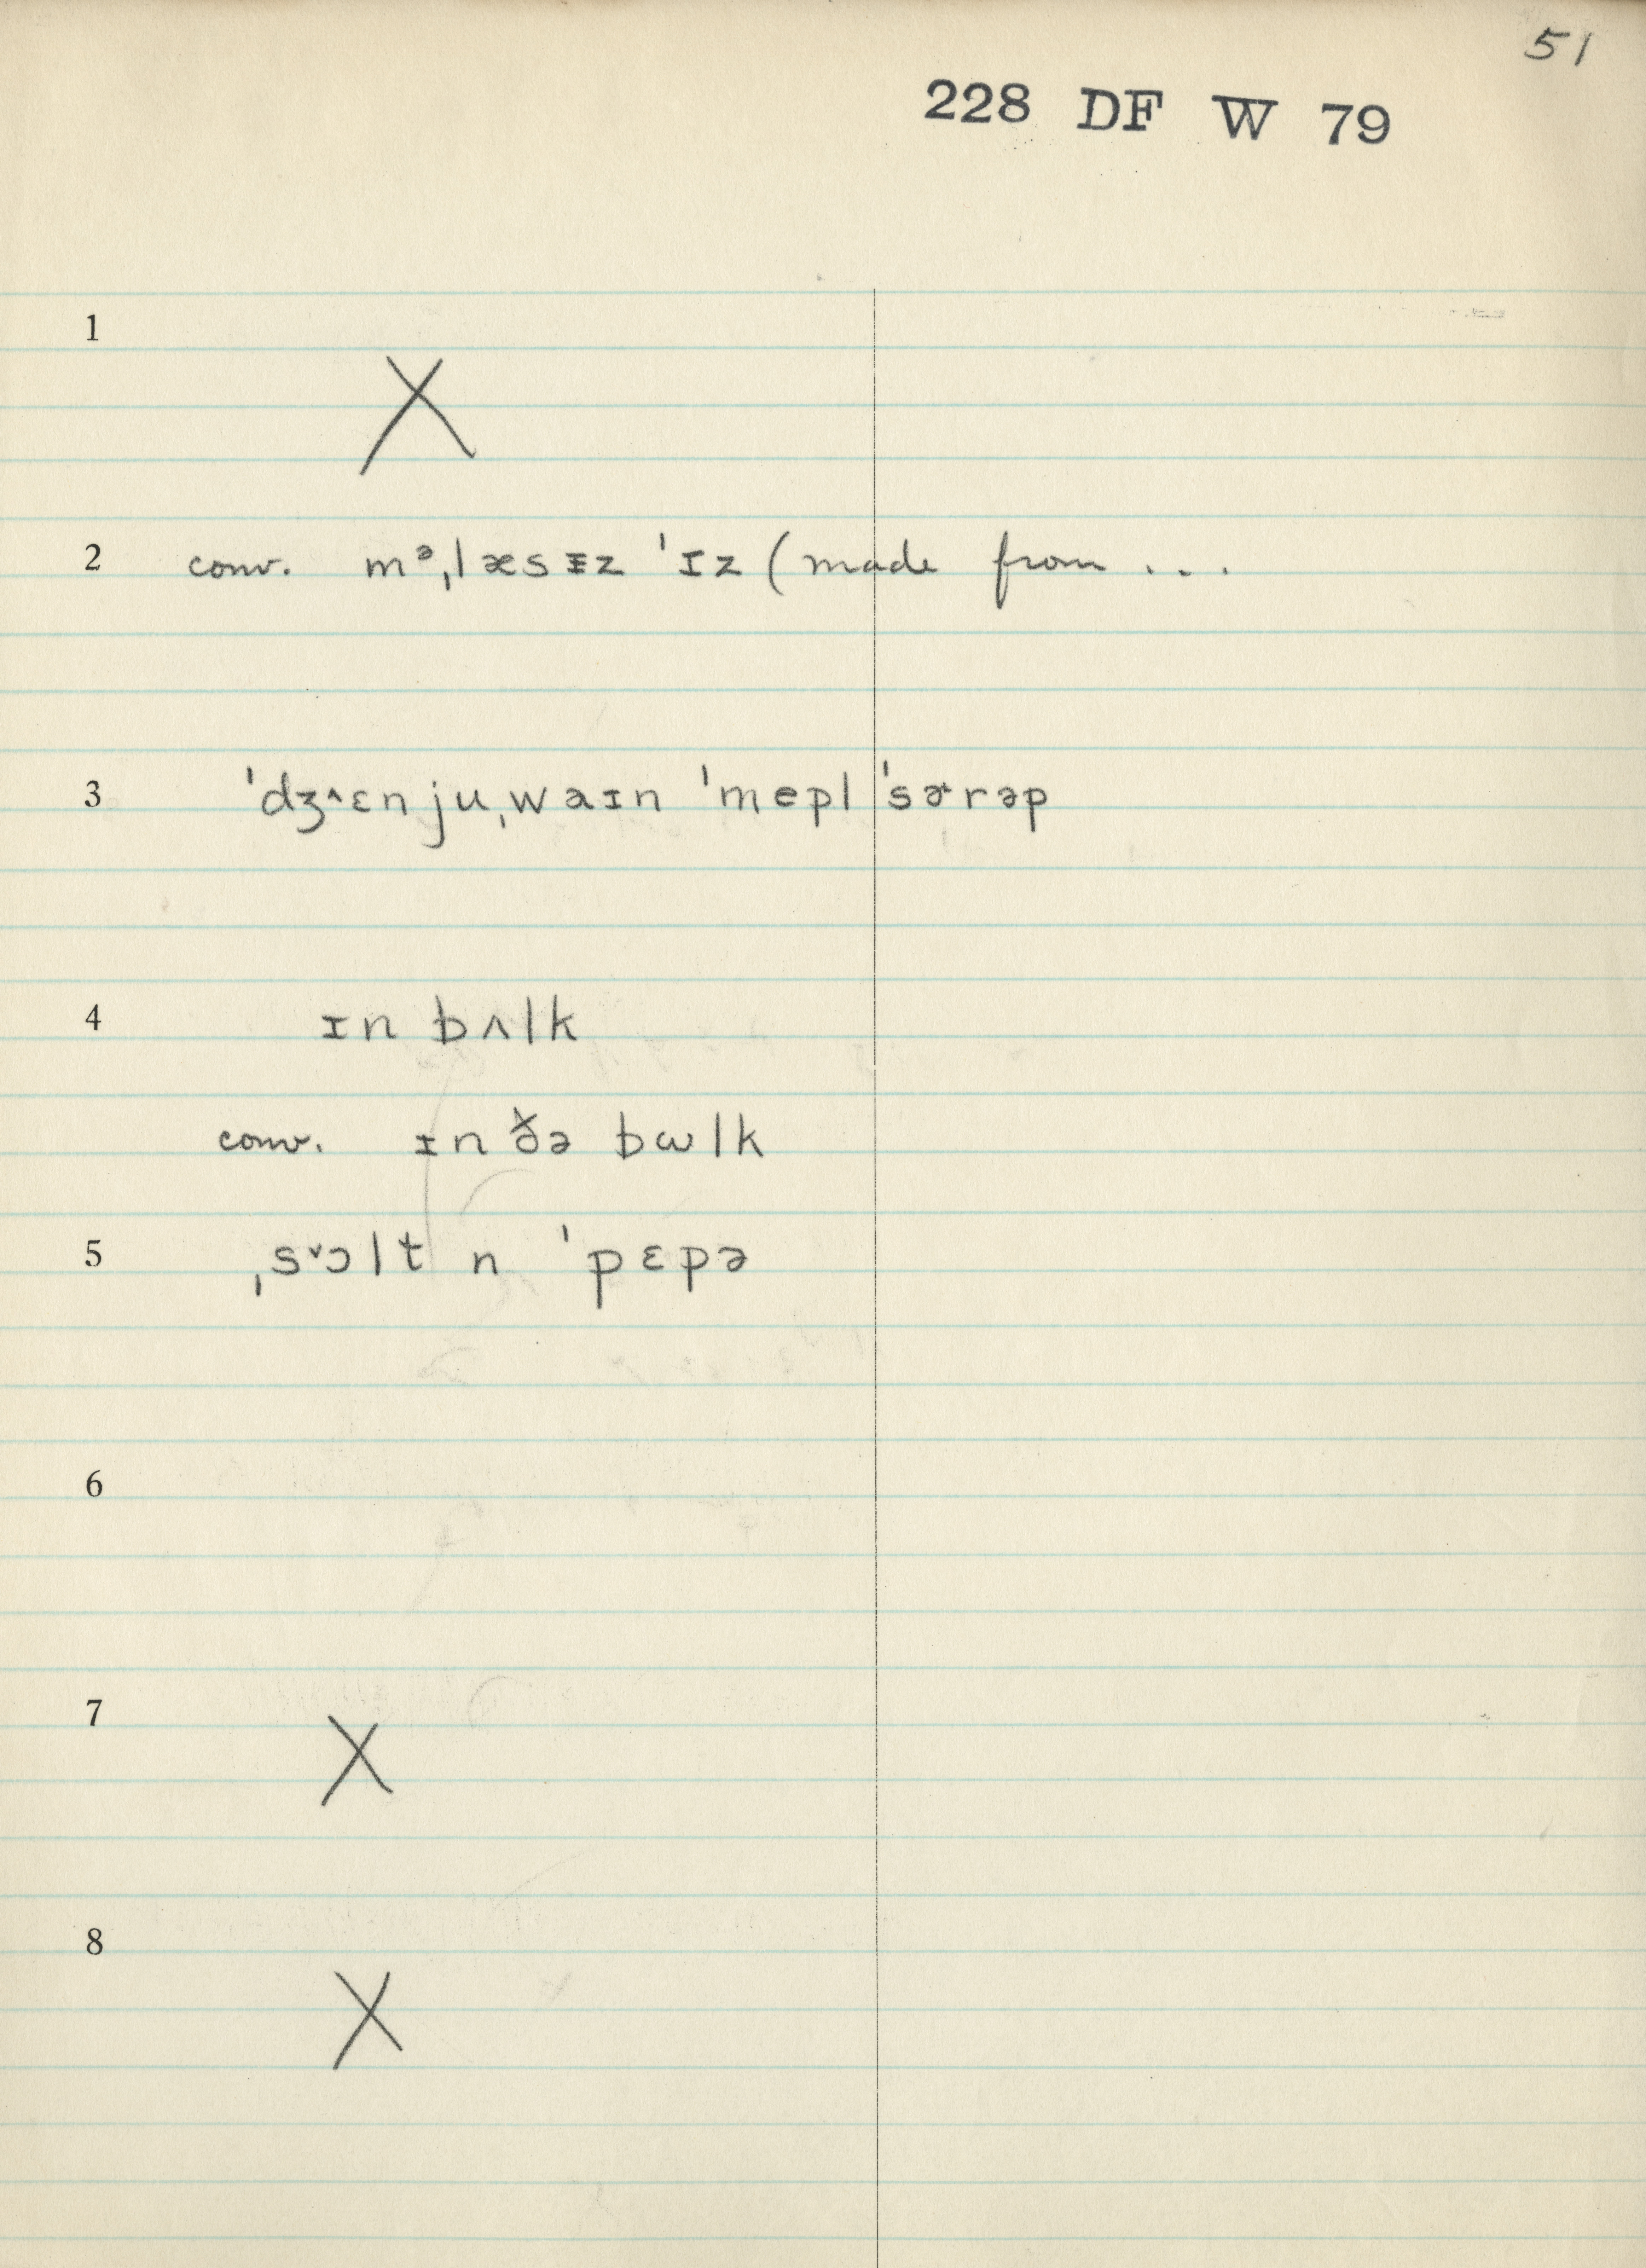 51
228 DF W 79
1
X
2 conv. mᵊˌlæsɪ̵z ˈɪz (made from ...
3 ˈdʒ˄ɛnjuˌwaɪn ˈmepl ˈsɚrəp
4 ɪn bʌlk
conv. ɪn ðə bɷlk
5 ˌs˅ɔlt n ˈpɛpə
6
7
X
8
X